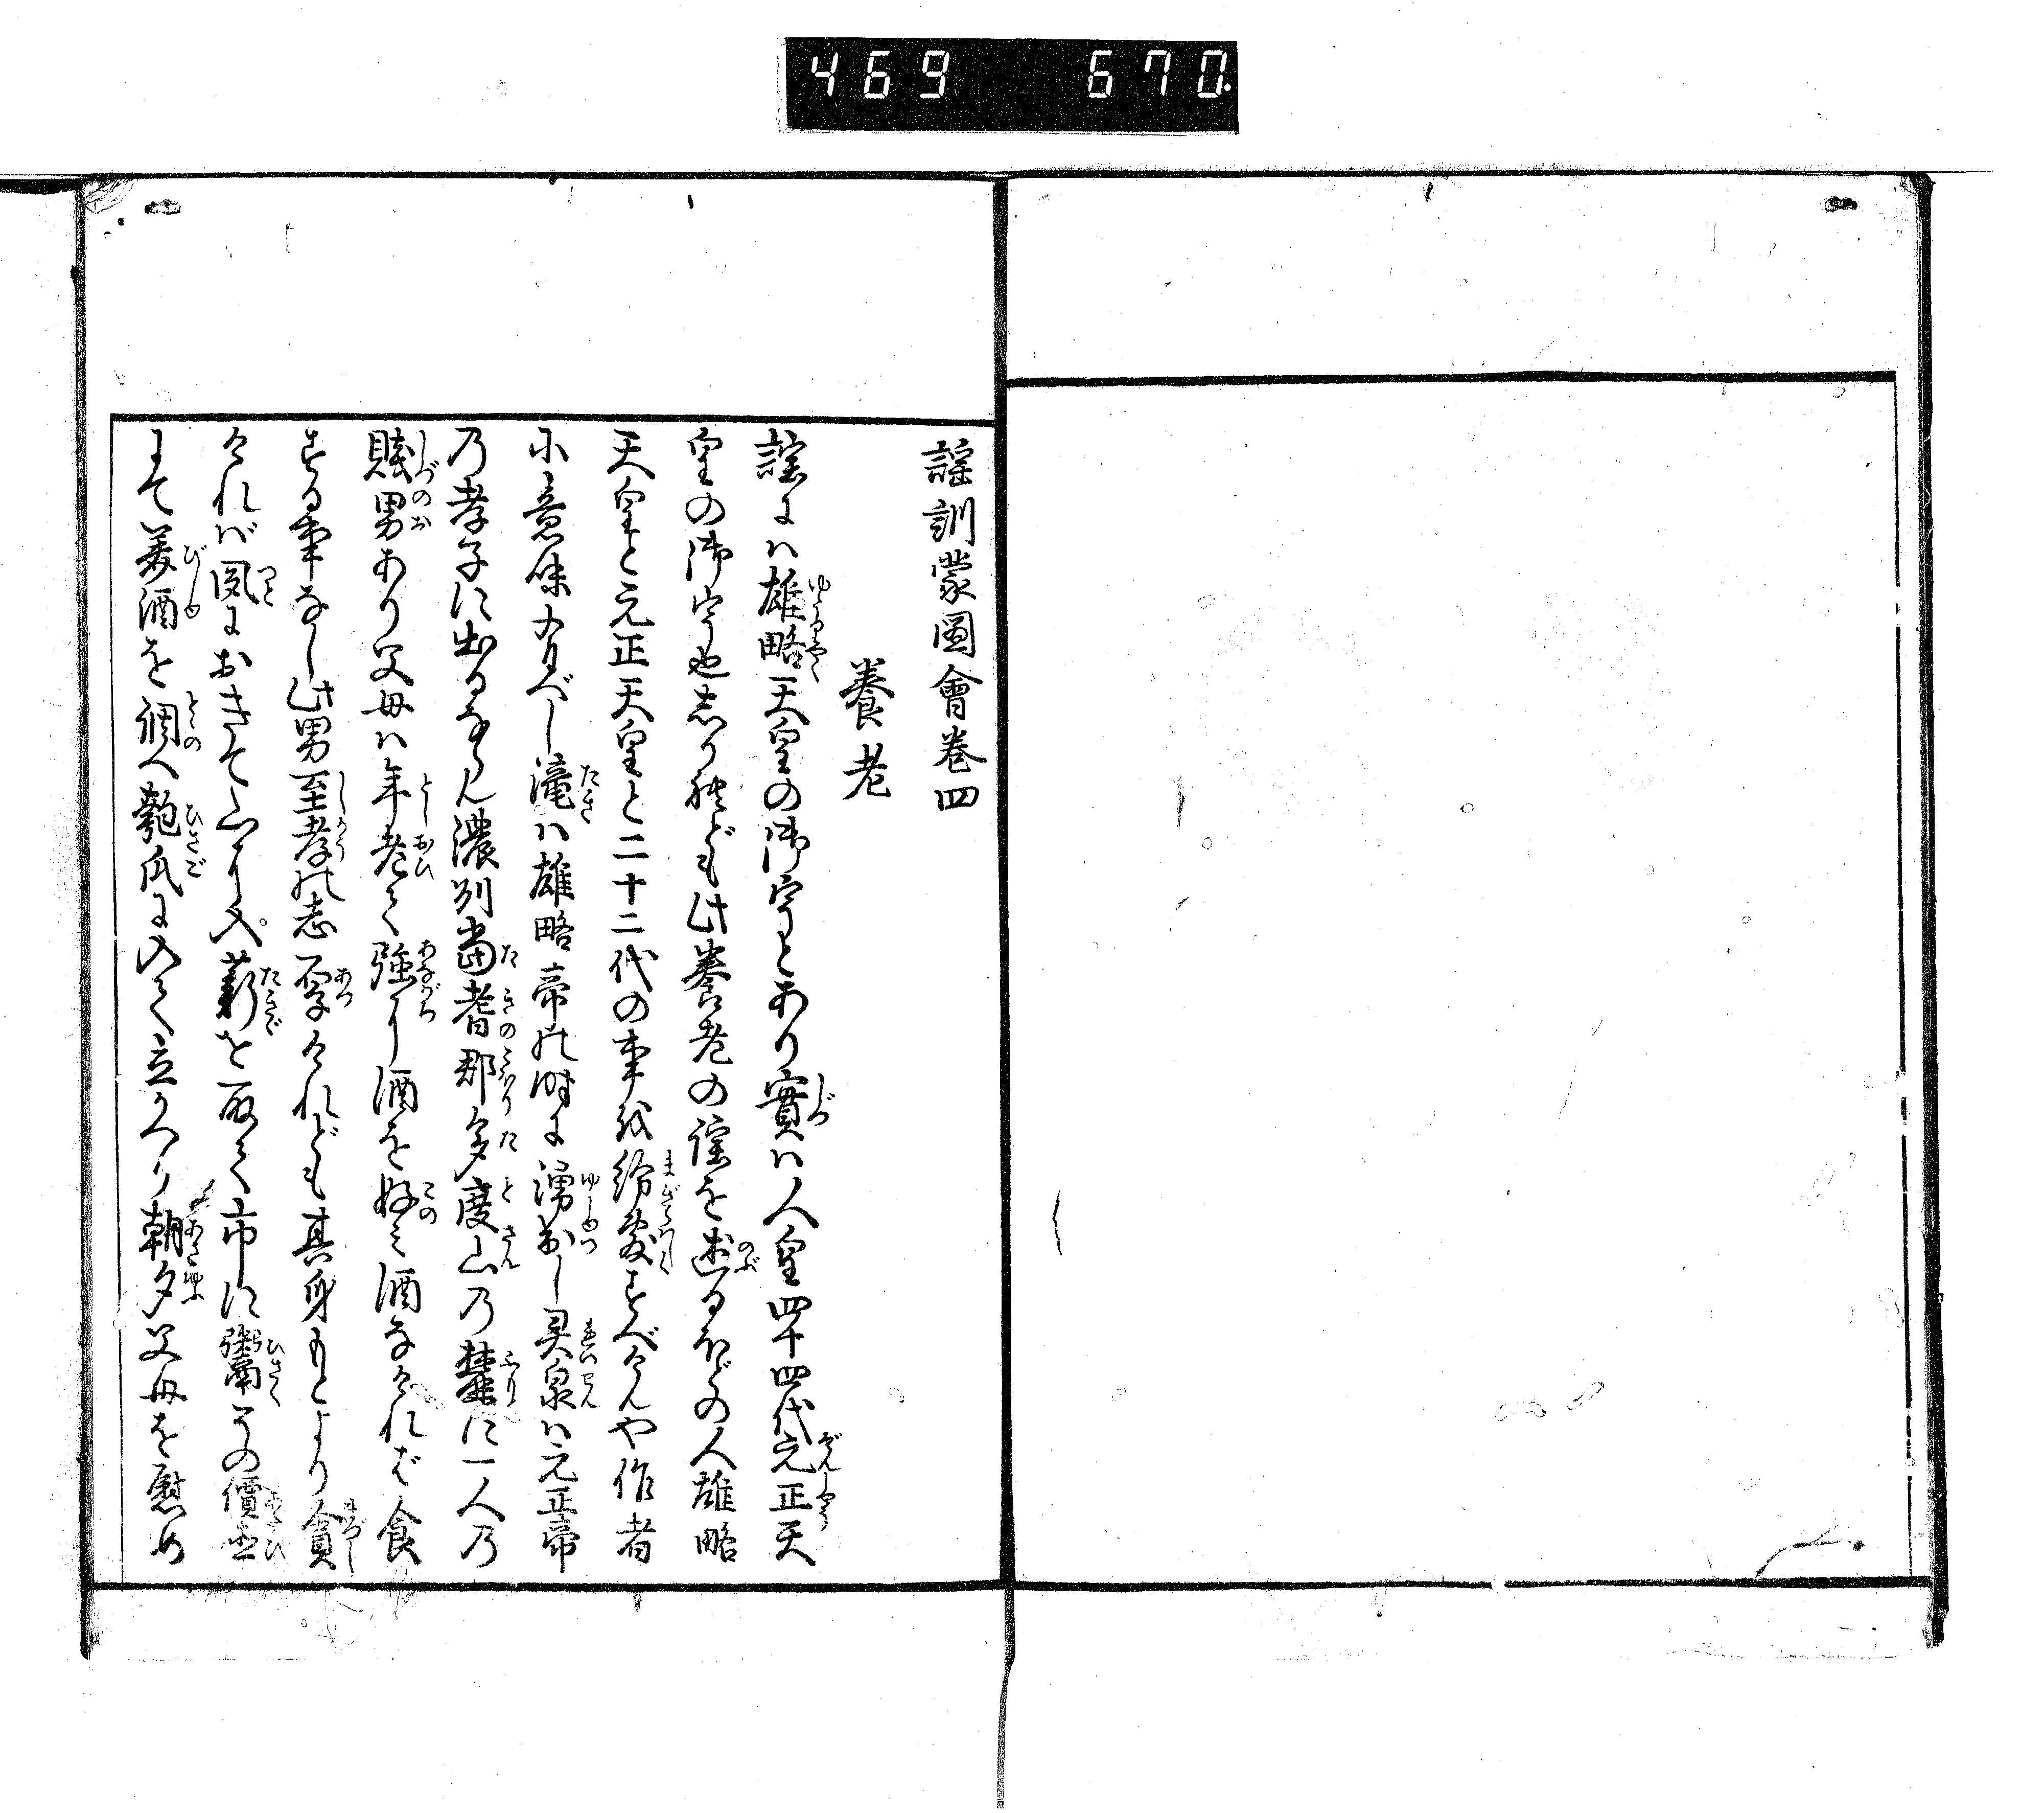 469 670
謡訓蒙圖會巻四
養老
謡にハ雄略天皇の御宇とあり實ハ人皇四十四代元正天
皇の御宇也しかれども此養老の謡を述るほどの人雄略
天皇と元正天皇と二十二代の事を紛べんや作者
に意味有べし滝ハ雄略帝の時に湧出し灵泉ハ元正帝
の孝子に出るならん濃州當耆郡多度山の麓に一人の
賎男あり父母ハ年老て強に酒を好み酒なければ食
する事なし此男至孝の志厚けれども其身もとより貧
ければ夙におきて山に入薪を取て市に鬻その價
にて美酒を調へ匏瓜に入て立かへり朝夕父母を慰め